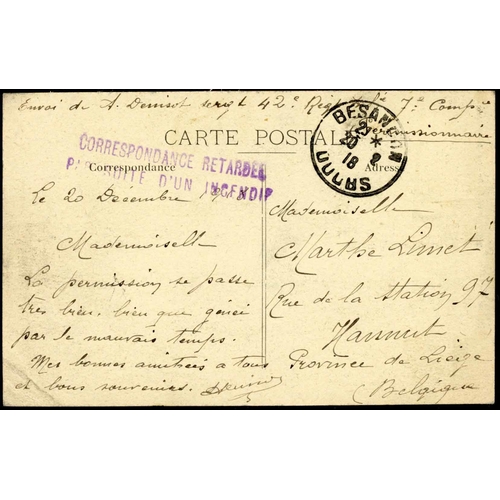 Envoi de A. Denisot sergt 42e Régt d'Inf 7e Compie
permissionnaire
CARTE POSTALE
BESANÇON
20 * 12
18
DOUBS
CORRESPONDANCE RETARDEE
PAR SUITE D'UN INCENDIE
Correspondance
Adresse
Le 20 Decembre 1918
Mademoiselle
La permission se passe
très bien, bien que gêné
par le mauvais temps.
Mes bonnes amitiées a tous
et bons souvenirs.
Mademoiselle
Marthe Limet
Rue de la Station 97
Hannut
Province de Liège
(Belgique